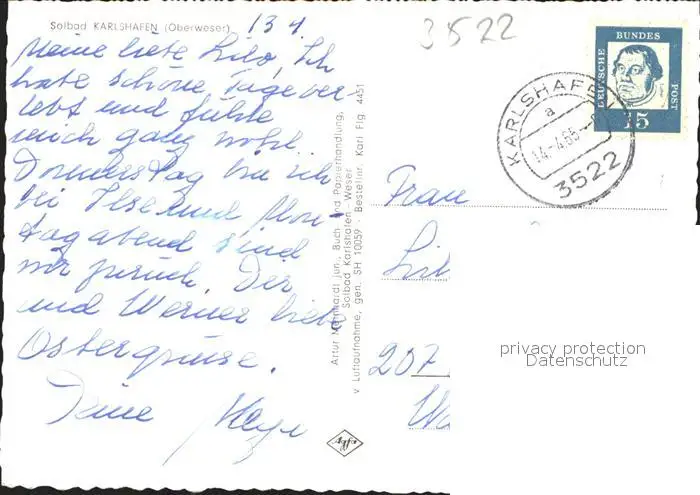 Solbad KARLSHAFEN (Oberweser)
13 4.
3522
Meine liebe Lilo, Ich
habe schöne Tage ver-
lebt und fühle
mich ganz wohl.
Donnerstag bin ich
bei Ilse und Mon-
tag abend sind
wir zurück. Dir
und Werner liebe
Ostergrüsse.
Deine
Artur Meinhardt jun., Buch- und Papierhandlung,
Solbad Karlshafen - Weser
v. Luftaufnahme, gen. SH 10059 · Bestellnr. Karl Flg. 4451
DEUTSCHE BUNDES POST
15
KARLSHAFEN
a
14.-4.65
3522
Frau
Lil
207
privacy protection
Datenschutz